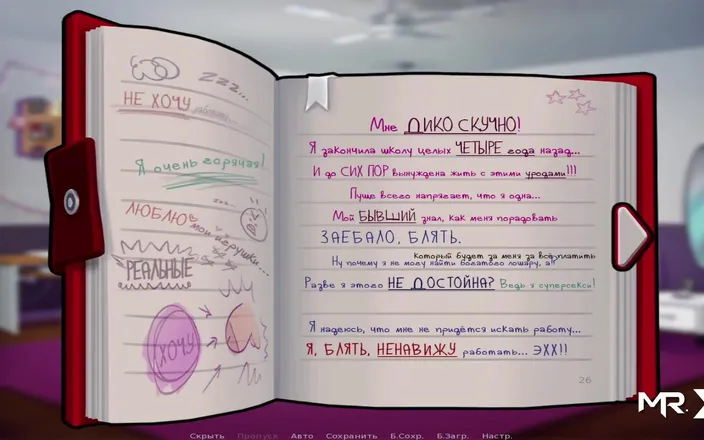 zzz...
НЕ ХОЧУ работать...
Я очень горячая!
ЛЮБЛЮ мои игрушки...
РЕАЛЬНЫЕ
ХОЧУ
Мне ДИКО СКУЧНО!
Я закончила школу целых ЧЕТЫРЕ года назад...
И до СИХ ПОР вынуждена жить с этими уродами!!!
Пуще всего напрягает, что я одна...
Мой БЫВШИЙ знал, как меня порадовать
ЗАЕБАЛО, БЛЯТЬ.
Который будет за меня за все платить
Ну почему я не могу найти богатого лошару, а?
Разве я этого НЕ ДОСТОЙНА? Ведь я суперсекси!
Я надеюсь, что мне не придётся искать работу...
Я, БЛЯТЬ, НЕНАВИЖУ работать... ЭХХ!!
26
MR. X
Скрыть Пропуск Авто Сохранить Б.Сохр. Б.Загр. Настр.